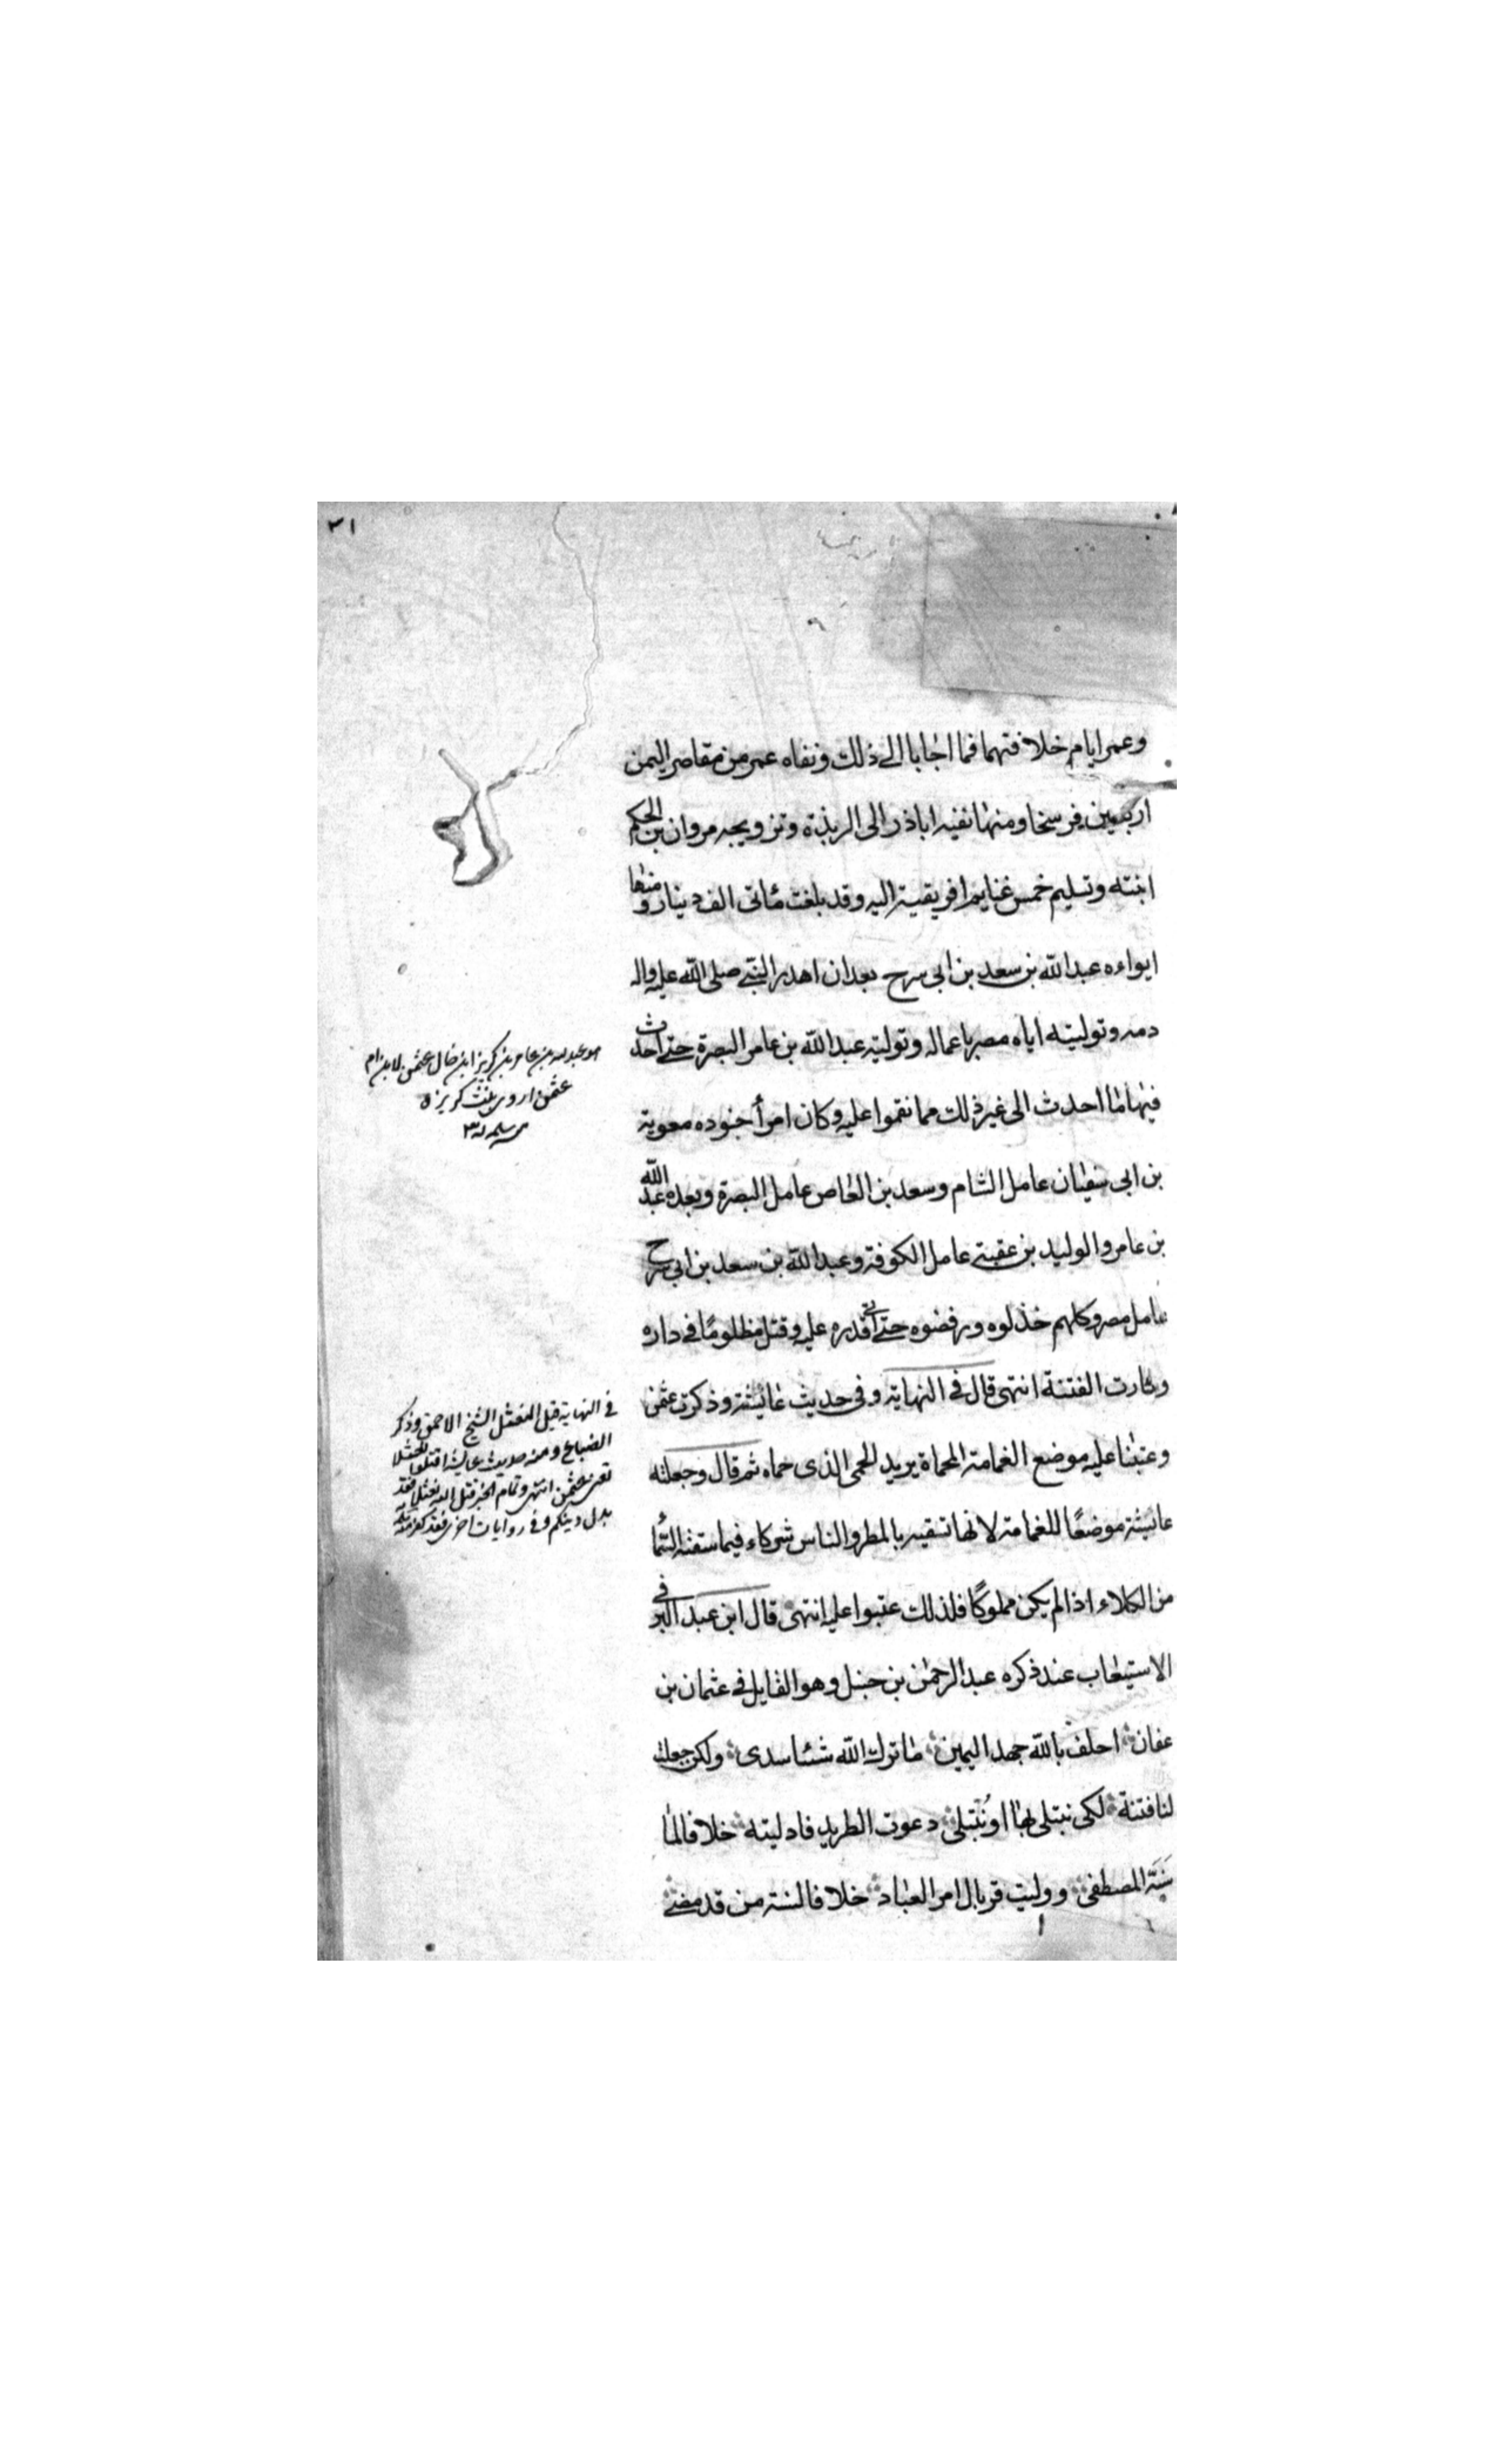 ٣١
وعمر ايام خلافتهما فما اجابا الى ذلك ونفاه عمر من مقامه باليمن
اربعين فرسخا ومنها نفيه اباذر الى الربذة وتزويجه مروان بن الحكم
ابنته وتسليم خمس غنايم افريقية اليه وقد بلغت مأتى الف دينار ومنها
ايواءه عبد الله بن سعد بن ابى سرح بعد ان اهدر النبى صلى الله عليه واله
دمه وتوليته اياه مصر باعماله وتوليته عبد الله بن عامر البصرة حتى احدث
فيها ما احدث الى غير ذلك مما نقموا عليه وكان امرأ جنوده معوية
بن ابى سفيان عامل الشام وسعد بن العاص عامل البصرة وبعده عبد الله
بن عامر والوليد بن عقبة عامل الكوفة وعبد الله بن سعد بن ابى سرح
عامل مصر وكلهم خذلوه ورفضوه حتى اتى قدره عليه وقتل مظلومًا فى داره
وثارت الفتنة انتهى قال فى النهاية وفى حديث عائيشة وذكرت عثمن
وعتبنا عليه موضع الغمامة المحماة يريد الحمى الذى حماه ثم قال وجعلته
عائيشة موضعًا للغمامة لانها تسقيه بالمطر والناس شركاء فيما سقته السمأ
من الكلاء اذا لم يكن مملوكًا فلذلك عتبوا عليه انتهى قال ابن عبد البر فى
الاستيعاب عند ذكره عبد الرحمن بن حنبل وهو القايل فى عثمان بن
عفان احلف بالله جهد اليمين ما ترك الله شئا سدى ولكن جعلت
لنا فتنة لكى نبتلى بها او تُبتلى دعوت الطريد فادليته خلافا لما
سَنَّه المصطفى ووليت قرباك امر العباد خلافا لسنة من قد مضى
هو عبد الله بن عامر بن كريز ابن خال عثمن لان ام
عثمن اروى بنت كريز ه
فى النهاية قيل النعثل الشيخ الاحمق وذكر
الضباع ومنه حديث عايشة اقتلوا نعثلا
تعنى عثمن انتهى وتمام الخبر قتل الله نعثلا فقد
بدل دينكم وفى روايات اخرى فقد كفر